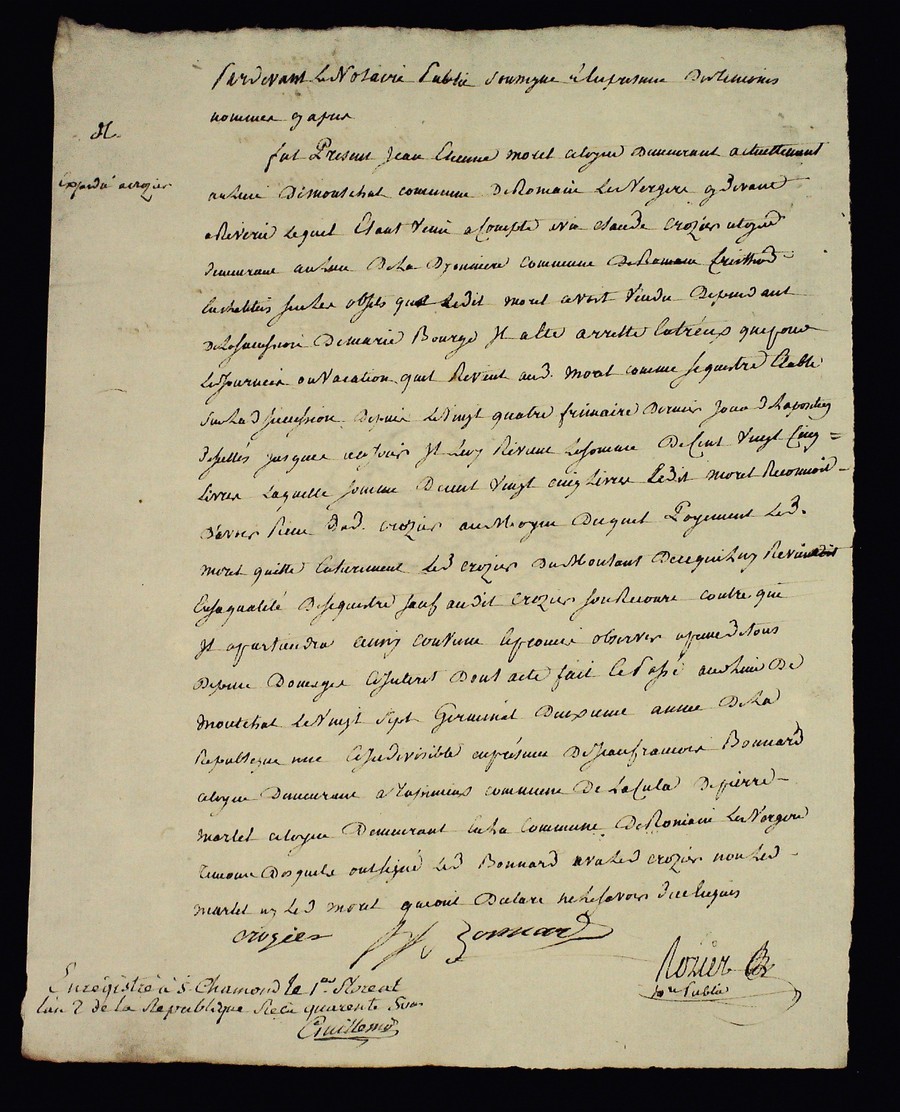 Pardevant Le Notaire Public Soussigné & En presence Des temoins
nommes cy apres
expedié a crozier
fut Present Jean Etienne moret citoyen Demeurant actuellement
au lieu De montchat commune De Romain Les Vergers cy devant
a Riverie Lequel Etant Venu a Compte avec claude crozier citoyen
demeurant au lieu De La Commune De Romain
sur Les objets que Ledit moret avoit Vendu Dependant
De La succession De marie Bourge Il a Eté arretté Entreux que pour
Les Journees ou Vacation quil Revient aud. moret comme sequestre Etabli
sur La d succession Depuis Le Vingt quatre frimaire Dernier Jour de Lapposition
Desselles jusques Il Luy Revient La somme De Cent Vingt Cinq
Livres Laquelle somme De cent Vingt cinq Livres Ledit moret Reconnoit
D'avoir Recu Dud. crozier au Moyen Duquel Payement Led.
moret quitte Entierement Led crozier Du Montant De ce qui Luy Revenoit
En sa qualité De sequestre sauf audit crozier son Recours contre qui
Il apartiendra ainsy convenu Et promis observer a peine De tous
Depens Domages Et Interet Dont acte fait Et Passé au Lieu De
montchat Le Vingt sept Germinal Deuxieme année De La
Republique une Et Indivisible en presence De Jean francois Bonnard
citoyen Demeurant a commune De La Cula De pierre
martet citoyen Demeurant En La Commune De Romain Les Vergers
Temoins Desquels ont signé Led Bonnard avec Led crozier non Led
martet ny Led moret qui ont Declaré ne Le savoir De ce Enquis
crozier Bonnard
Rozier
no.re Public
Enregistré à St Chamond le 1er floreal
l'an 2 de la Republique Reçu quarente Sous
Guillemo